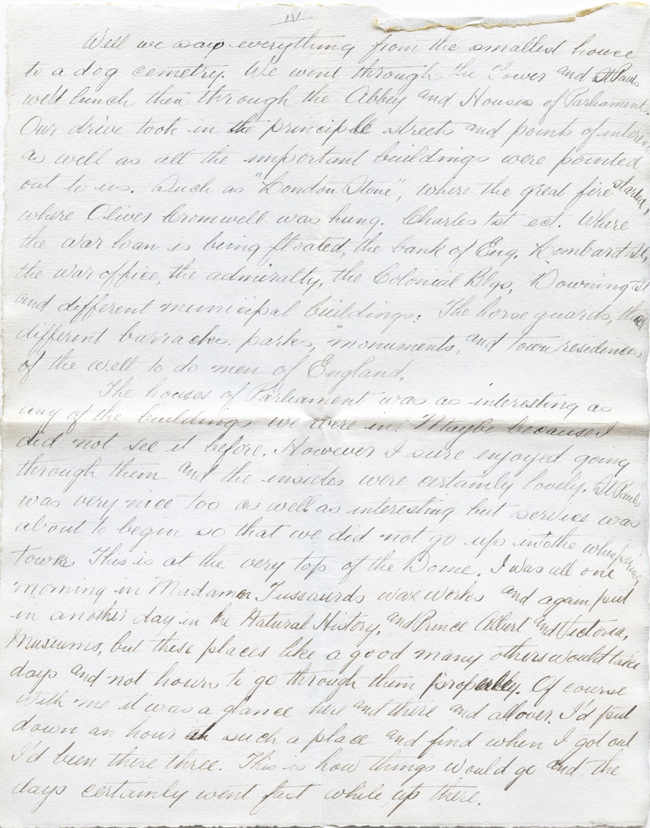 IV
Well we saw everything from the smallest house
to a dog cemetry. We went through the Tower and St Pauls
we'd lunch then through the Abbey and Houses of Parliament.
Our drive took in the principle streets and points of interest
as well as all the important buildings were pointed
out to us. Such as "London Stone", where the great fire started,
where Oliver Cromwell was hung. Charles 1st ect. Where
the war loan is being floated, the bank of Eng. Lombard St,
the war office, the admiralty, the Colonial Blgs. Downing St
and different municipal buildings. The horse guards, the
different burracks. parks, monuments, and town residences
of the well to do men of England.
The houses of Parliament was as interesting as
any of the buildings we were in. Maybe because I
did not see it before. However I sure enjoyed going
through them and the insides were certainly lovely. St Pauls
was very nice too as well as interesting but service was
about to begin so that we did not go up into the whispering
tower This is at the very top of the Dome. I was all one
morning in Madame Tussaurds wax works and again put
in another day in the Natural History, and Prince Albert and Victoria,
Museums, but these places like a good many others would take
days and not hours to go through them properly. Of course
with me it was a glance here and there and all over. I'd put
down an hour at such a place and find when I got out
I'd been there three. This is how things would go and the
days certainly went fast while up there.